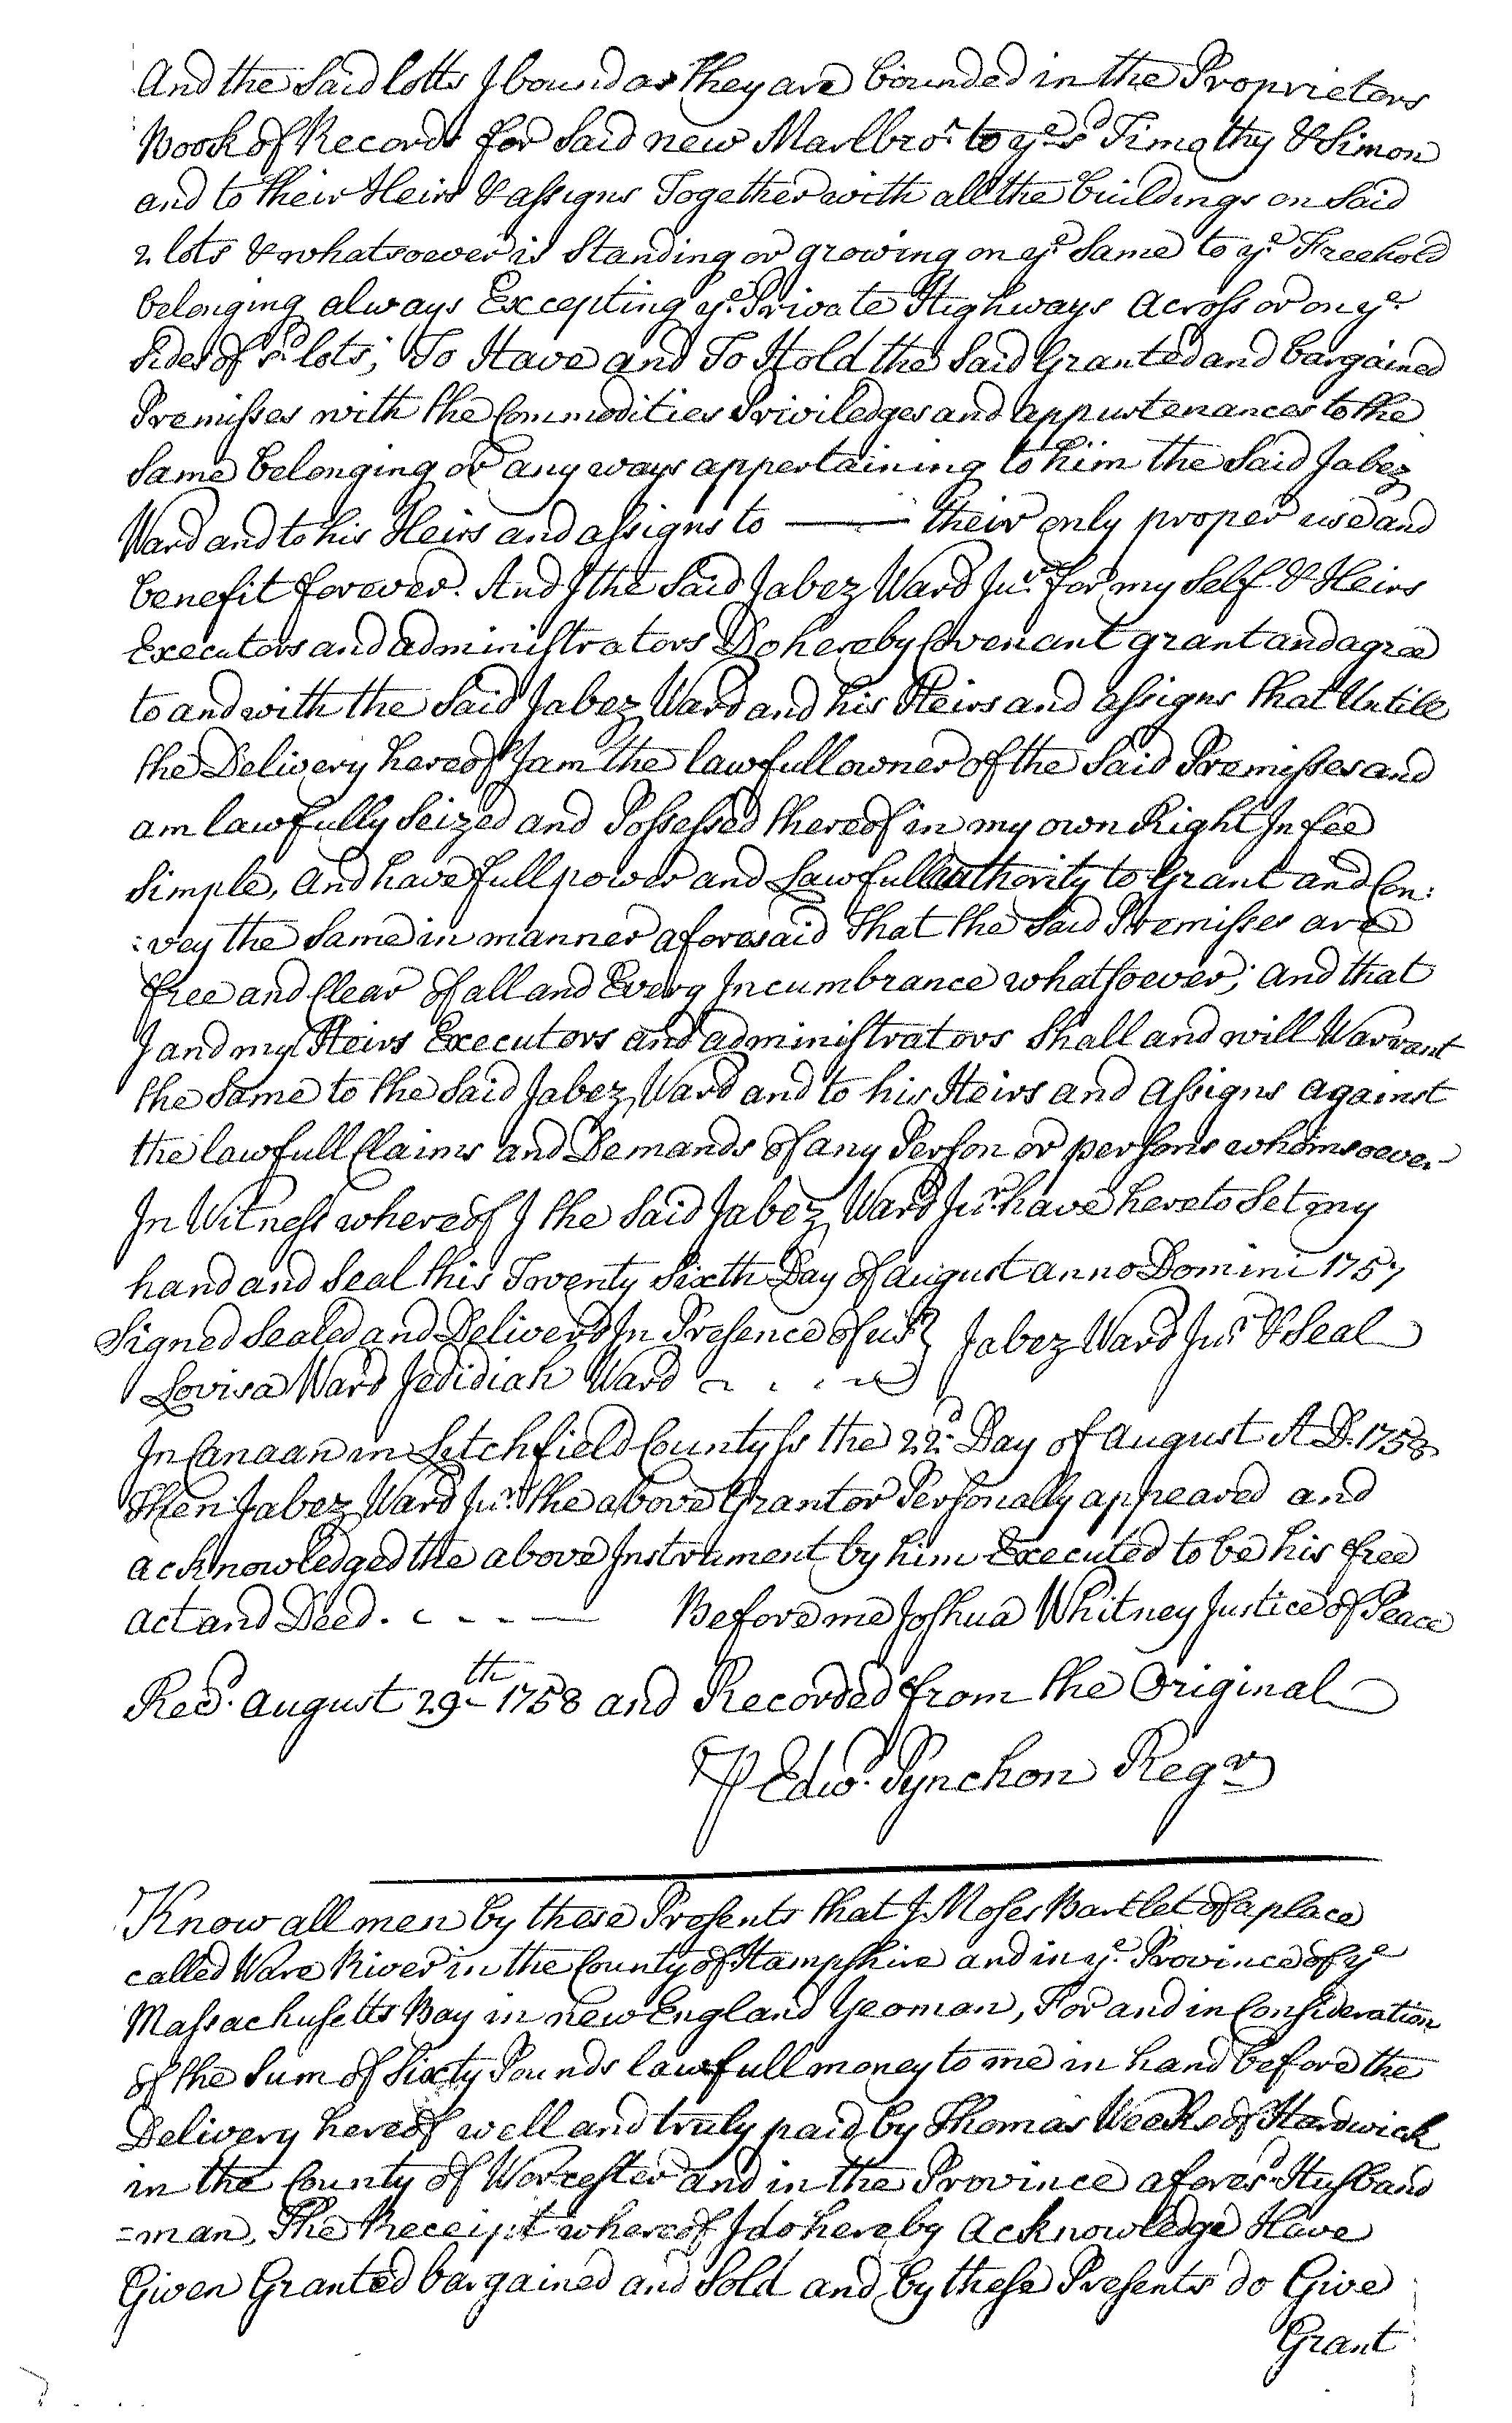 And the Said lotts I bound as they are bounded in the Proprietors
Book of Records for Said new Marlbro.^r to y^e s^d Timothy & Simon
and to their Heirs & assigns Together with all the buildings on Said
2 lots & whatsoever is Standing or growing on y^e Same to y^e Freehold
belonging always Excepting y^e Private Highways Across or on y^e
Sides of s^d lots; To Have and To Hold the Said Granted and bargained
Premisses with the Commodities Priviledges and appurtenances to the
Same belonging or any ways appertaining to him the Said Jabez
Ward and to his Heirs and assigns to —— their only proper use and
benefit forever. And I the Said Jabez Ward Ju^r for my Self & Heirs
Executors and administrators Do hereby Covenant grant and agree
to and with the Said Jabez Ward and his Heirs and assigns that Untill
the Delivery hereof I am the lawfull owner of the Said Premisses and
am lawfully Seized and Possessed thereof in my own Right In fee
Simple, And have full power and Lawfull authority to Grant and Con:
:vey the Same in manner aforesaid That the Said Premisses are
free and Clear of all and Every Incumbrance whatsoever; and that
I and my Heirs Executors and administrators Shall and will Warrant
the Same to the Said Jabez Ward and to his Heirs and Assigns against
the lawfull Claims and Demands of any Person or persons whomsoever
In Witness whereof I the Said Jabez Ward Ju^r have hereto Set my
hand and Seal this Twenty Sixth Day of august anno Domini 1757
Signed Sealed and Deliver'd In Presence of us } Jabez Ward Ju^r & Seal
Lovisa Ward Jedidiah Ward
In Canaan in Litchfield County ss the 22^d Day of August A D. 1758
Then Jabez Ward Ju^r the above Grantor Personally appeared and
acknowledged the above Instrument by him Executed to be his free
act and Deed. - - - — Before me Joshua Whitney Justice of Peace
Rec^d. august 29^th 1758 and Recorded from the Original
P Edw^d. Pynchon Reg^r
Know all men by these Presents that I Moses Bartlet of a place
called Ware River in the County of Hampshire and in y^e Province of y^e
Massachusetts Bay in new England Yeoman, For and in Consideration
of the Sum of Sixty Pounds lawfull money to me in hand before the
Delivery hereof well and truly paid by Thomas Weeks of Hardwick
in the County of Worcester and in the Province afores^d Husband
=man, The Receipt whereof I do hereby Acknowledge Have
Given Granted bargained and Sold and by these Presents do Give
Grant